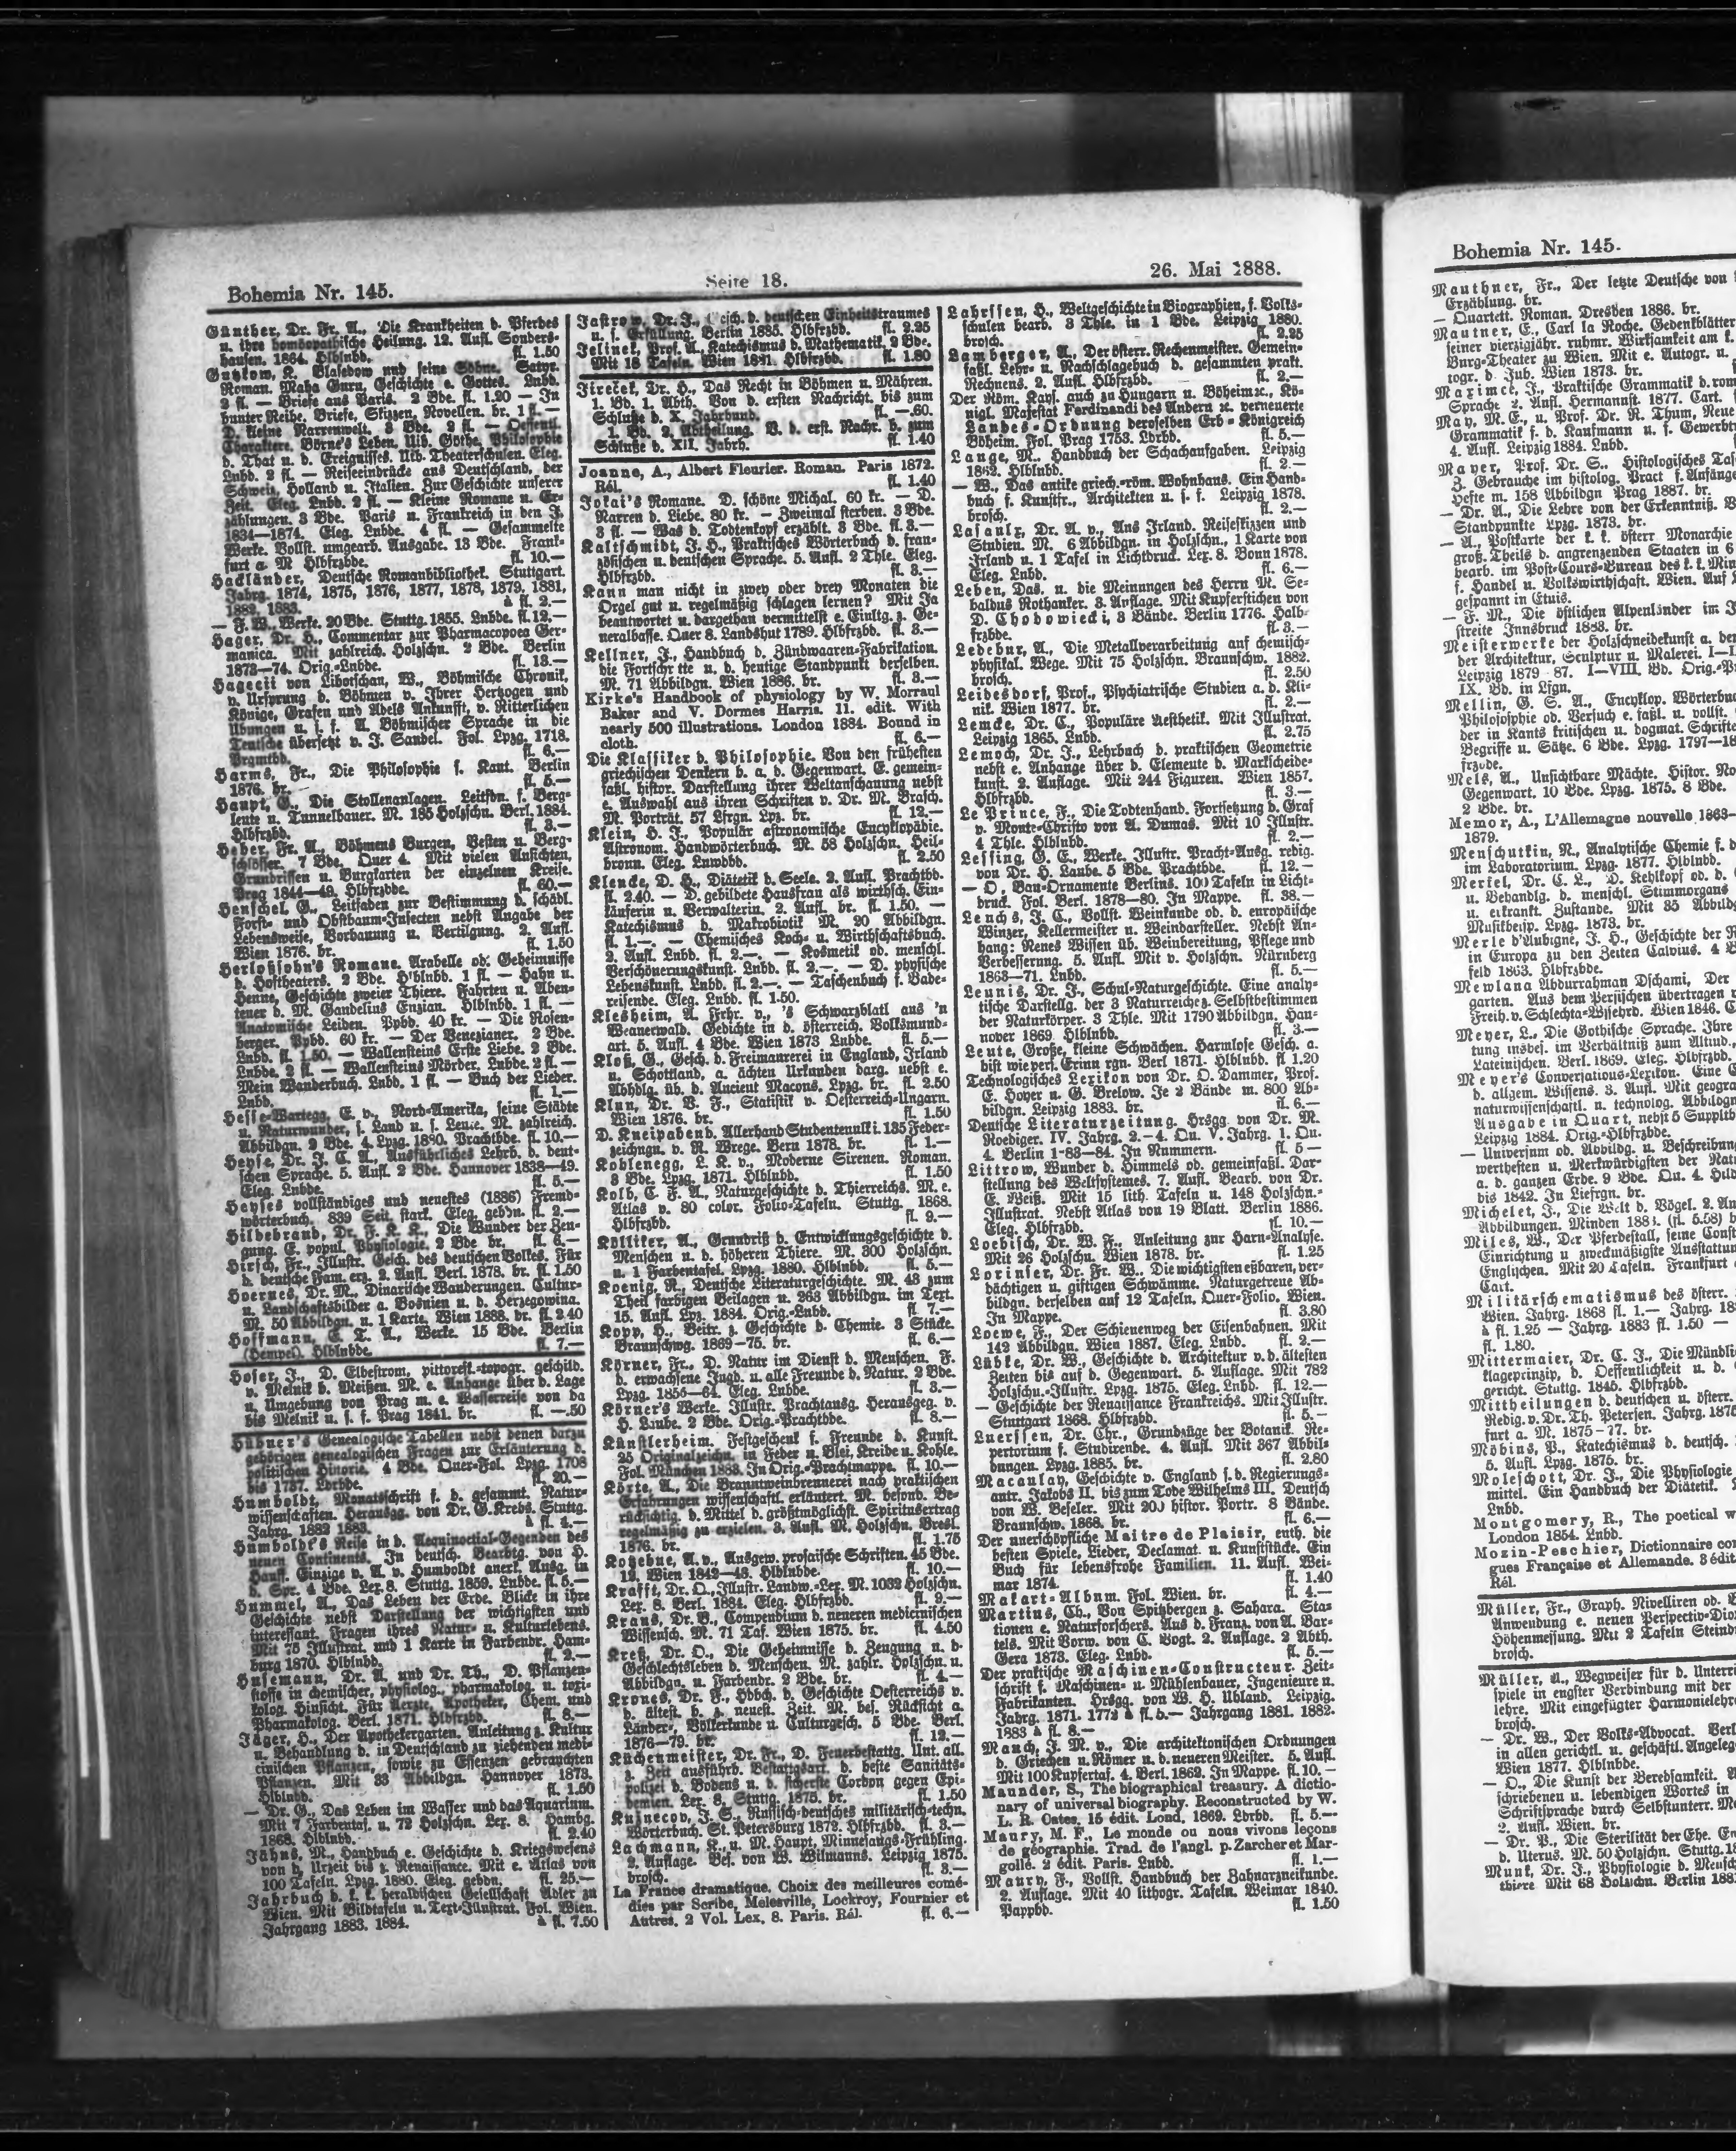 Bohemia Nr. 145.
Seite 18.
26. Mai 1888.
Günther, Dr. Fr. A., Die Krankheiten d. Pferdes
u. ihre homöopathische Heilung. 12. Aufl. Sonders-
hausen. 1864. Hlblnbd. fl. 1.50
Gutzkow, K. Blasedow und seine Söhne. Satyr.
Roman. Maha Guru, Geschichte e. Gottes. Lnbd.
2 fl. — Briefe aus Paris. 2 Bde. fl. 1.20 — In
bunter Reihe. Briefe, Skizzen, Novellen. br. 1 fl. —
D. kleine Narrenwelt. 3 Bde. 2 fl. — Oeffentl.
Charaktere. Börne's Leben. Üb. Göthe, Philosophie
d. That u. d. Ereignisses. Üb. Theaterschulen. Eleg.
Lnbd. 2 fl. — Reiseeindrücke aus Deutschland, der
Schweiz, Holland u. Italien. Zur Geschichte unserer
Zeit. Eleg. Lnbd. 2 fl. — Kleine Romane u. Er-
zählungen. 3 Bde. Paris u. Frankreich in den J.
1834—1874. Eleg. Lnbde. 4 fl. — Gesammelte
Werke. Vollst. umgearb. Ausgabe. 13 Bde. Frank-
furt a. M Hlbfrzbde. fl. 10.—
Hackländer, Deutsche Romanbibliothek. Stuttgart.
Jahrg. 1874, 1875, 1876, 1877, 1878, 1879, 1881,
1882, 1883. à fl. 2.—
— F. W., Werke. 20 Bde. Stuttg. 1855. Lnbde. fl. 12.—
Hager, Dr. H., Commentar zur Pharmacopoea Ger-
manica. Mit zahlreich. Holzschn. 2 Bde. Berlin
1873—74. Orig.-Lnbde. fl. 13.—
Hagecii von Libotschan, W., Böhmische Chronik,
v. Ursprung d. Böhmen v. Ihrer Hertzogen und
Könige, Grafen und Adels Ankunfft, v. Ritterlichen
Übungen u. s. f. A. Böhmischer Sprache in die
Teutsche übersetzt v. J. Sandel. Fol. Lpzg. 1718.
Prgmtbd. fl. 6.—
Harms, Fr., Die Philosophie s. Kant. Berlin
1876. br. fl. 5.—
Haupt, G., Die Stollenanlagen. Leitfdn. f. Berg-
leute u. Tunnelbauer. M. 185 Holzschn. Berl. 1884.
Hlbfrzbd. fl. 3.—
Heber, Fr. A., Böhmens Burgen, Vesten u. Berg-
schlösser. 7 Bde. Quer 4. Mit vielen Ansichten,
Grundrissen u. Burgkarten der einzelnen Kreise.
Prag 1844—49. Hlbfrzbde. fl. 60.—
Henschel, G., Leitfaden zur Bestimmung d. schädl.
Forst- und Obstbaum-Insecten nebst Angabe der
Lebensweise, Vorbauung u. Vertilgung. 2. Aufl.
Wien 1876. br. fl. 1.50
Herloßsohn's Romane. Arabelle od. Geheimnisse
d. Hoftheaters. 2 Bde. Hlblnbd. 1 fl. — Hahn u.
Henne, Geschichte zweier Thiere. Fahrten u. Aben-
teuer d. M. Gaudelius Enzian. Hlblnbd. 1 fl. —
Anatomische Leiden. Ppbd. 40 kr. — Die Rosen-
berger. Ppbd. 60 kr. — Der Venezianer. 2 Bde.
Lnbd. fl. 1.50. — Wallensteins Erste Liebe. 2 Bde.
Lnbde. 2 fl. — Wallensteins Mörder. Lnbde. 2 fl. —
Mein Wanderbuch. Lnbd. 1 fl. — Buch der Lieder.
Lnbd. fl. 1.—
Hesse-Wartegg, E. v., Nord-Amerika, seine Städte
u. Naturwunder, s. Land u. s. Leute. M. zahlreich.
Abbildgn. 2 Bde. 4. Lpzg. 1880. Prachtbde. fl. 10.—
Heyse, Dr. J. C. A., Ausführliches Lehrb. d. deut-
schen Sprache. 5. Aufl. 2 Bde. Hannover 1838—49.
Eleg. Lnbde. fl. 5.—
Heyses vollständiges und neuestes (1886) Fremd-
wörterbuch. 839 Seit. stark. Eleg. gebdn. fl. 2.—
Hildebrand, Dr. F. K. K., Die Wunder der Zeu-
gung. E. popul. Physiologie. 2 Bde br. fl. 6.—
Hirsch, Fr., Illustr. Gesch. des deutschen Volkes. Für
d. deutsche Fam. erz. 2. Aufl. Berl. 1878. br. fl. 1.50
Hoernes, Dr. M., Dinarische Wanderungen. Cultur-
u. Landschaftsbilder a. Bosnien u. d. Herzegowina.
M. 50 Abbildgn. u. 1 Karte. Wien 1888. br. fl. 2.40
Hoffmann, E. T. A., Werke. 15 Bde. Berlin
(Hempel). Hlblnbde. fl. 7.—
Hofer, J., D. Elbestrom, pittoresk.-topogr. geschild.
v. Melnik b. Meißen. M. e. Anhange über d. Lage
u. Umgebung von Prag m. e. Wasserreise von da
bis Melnik u. s. f. Prag 1841. br. fl. —.50
Hübner's Genealogische Tabellen nebst denen darzu
gehörigen genealogischen Fragen zur Erläuterung d.
politischen Historie. 4 Bde. Quer-Fol. Lpzg. 1708
bis 1737. Ldrbde. fl. 20.—
Humboldt, Monatsschrift f. d. gesammt. Natur-
wissenschaften. Herausgg. von Dr. G. Krebs. Stuttg.
Jahrg. 1882 1883. à fl. 4.—
Humboldt's Reise in d. Aequinoctial-Gegenden des
neuen Continents. In deutsch. Bearbtg. von H.
Hauff. Einzige v. A. v. Humboldt anerk. Ausg. in
d. Spr. 4 Bde. Lex. 8. Stuttg. 1859. Lnbde. fl. 5.—
Hummel, A., Das Leben der Erde. Blicke in ihre
Geschichte nebst Darstellung der wichtigsten und
interessant. Fragen ihres Natur- u. Kulturlebens.
Mit 75 Illustrat. und 1 Karte in Farbendr. Ham-
burg 1870. Hlblnbd. fl. 2.—
Husemann, Dr. A. und Dr. Th., D. Pflanzen-
stoffe in chemischer, physiolog., pharmakolog. u. toxi-
kolog. Hinsicht. Für Aerzte, Apotheker, Chem. und
Pharmakolog. Berl. 1871. Hlbfrzbd. fl. 8.—
Jäger, H., Der Apothekergarten. Anleitung z. Kultur
u. Behandlung d. in Deutschland zu ziehenden medi-
cinischen Pflanzen, sowie zu Essenzen gebrauchten
Pflanzen. Mit 33 Abbildgn. Hannover 1873.
Hlblnbd. fl. 1.50
— Dr. G., Das Leben im Wasser und das Aquarium.
Mit 7 Farbentaf. u. 72 Holzschn. Lex. 8. Hambg.
1868. Hlblnbd. fl. 2.40
Jähns, M., Handbuch e. Geschichte d. Kriegswesens
von d. Urzeit bis z. Renaissance. Mit e. Atlas von
100 Tafeln. Lpzg. 1880. Eleg. gebdn. fl. 25.—
Jahrbuch d. k. k. heraldischen Gesellschaft Adler zu
Wien. Mit Bildtafeln u. Text-Illustrat. Fol. Wien.
Jahrgang 1883. 1884. à fl. 7.50
Jastrow, Dr. J., Gesch. d. deutschen Einheitstraumes
u. s. Erfüllung. Berlin 1885. Hlbfrzbd. fl. 2.25
Jelinek, Prof. A., Katechismus d. Mathematik. 2 Bde.
Mit 18 Tafeln. Wien 1841. Hlbfrzbd. fl. 1.80
Jireček, Dr. H., Das Recht in Böhmen u. Mähren.
1. Bd. 1. Abth. Von d. ersten Nachricht. bis zum
Schluße d. X. Jahrhund. fl. —.60.
1. Bd. 2. Abtheilung. V. d. erst. Nachr. b. zum
Schluße d. XII. Jahrh. fl. 1.40
Joanne, A., Albert Fleurier. Roman. Paris 1872.
Rél. fl. 1.40
Jokai's Romane. D. schöne Michal. 60 kr. — D.
Narren d. Liebe. 80 kr. — Zweimal sterben. 3 Bde.
3 fl. — Was d. Todtenkopf erzählt. 3 Bde. fl. 3.—
Kaltschmidt, J. H., Praktisches Wörterbuch d. fran-
zösischen u. deutschen Sprache. 5. Aufl. 2 Thle. Eleg.
Hlbfrzbd. fl. 3.—
Kann man nicht in zwey oder drey Monaten die
Orgel gut u. regelmäßig schlagen lernen? Mit Ja
beantwortet u. dargethan vermittelst e. Einltg. z. Ge-
neralbasse. Quer 8. Landshut 1789. Hlbfrzbd. fl. 3.—
Kellner, J., Handbuch d. Zündwaaren-Fabrikation.
die Fortschr tte u. d. heutige Standpunkt derselben.
M. 71 Abbildgn. Wien 1886. br. fl. 3.—
Kirke's Handbook of physiology by W. Morraul
Baker and V. Dormes Harris. 11. edit. With
nearly 500 illustrations. London 1884. Bound in
cloth. fl. 6.—
Die Klassiker d. Philosophie. Von den frühesten
griechischen Denkern b. a. d. Gegenwart. E. gemein-
faßl. histor. Darstellung ihrer Weltanschauung nebst
e. Auswahl aus ihren Schriften v. Dr. M. Brasch.
M. Porträt. 57 Lfrgn. Lpz. br. fl. 12.—
Klein, H. J., Populär astronomische Encyklopädie.
Astronom. Handwörterbuch. M. 58 Holzschn. Heil-
bronn. Eleg. Lnwdbd. fl. 2.50
Klencke, D. H., Diätetik d. Seele. 2. Aufl. Prachtbd.
fl. 2.40. — D. gebildete Hausfrau als wirthsch. Ein-
käuferin u. Verwalterin. 2. Aufl. br. fl. 1.50. —
Katechismus d. Makrobiotik M. 20 Abbildgn.
fl. 1.—. — Chemisches Koch- u. Wirthschaftsbuch.
2. Aufl. Lnbd. fl. 2.—. — Kosmetik od. menschl.
Verschönerungskunst. Lnbd. fl. 2.—. — D. physische
Lebenskunst. Lnbd. fl. 2.—. — Taschenbuch f. Bade-
reisende. Eleg. Lnbd. fl. 1.50.
Klesheim, A. Frhr. v., 's Schwarzblatl aus 'n
Weanerwald. Gedichte in d. österreich. Volksmund-
art. 5. Aufl. 4 Bde. Wien 1873 Lnbde. fl. 5.—
Kloß, G., Gesch. d. Freimaurerei in England, Irland
u. Schottland, a. ächten Urkunden darg. nebst e.
Abhdlg. üb. d. Ancient Macons. Lpzg. br. fl. 2.50
Klun, Dr. V. F., Statistik v. Oesterreich-Ungarn.
Wien 1876. br. fl. 1.50
D. Kneipabend. Allerhand Studentenulk i. 135 Feder-
zeichngn. v. R. Wrege. Bern 1878. br. fl. 1.—
Koblenegg, L. K. v., Moderne Sirenen. Roman.
3 Bde. Lpzg. 1871. Hlblnbd. fl. 1.50
Kolb, C. F. A., Naturgeschichte d. Thierreichs. M. e.
Atlas v. 80 color. Folio-Tafeln. Stuttg. 1868.
Hlbfrzbd. fl. 9.—
Kölliker, A., Grundriß d. Entwicklungsgeschichte d.
Menschen u. d. höheren Thiere. M. 300 Holzschn.
u. 1 Farbentafel. Lpzg. 1880. Hlblnbd. fl. 5.—
Koenig, R., Deutsche Literaturgeschichte. M. 43 zum
Theil farbigen Beilagen u. 263 Abbildgn. im Text.
15. Aufl. Lpz. 1884. Orig.-Lnbd. fl. 7.—
Kopp, H., Beitr. z. Geschichte d. Chemie. 3 Stücke.
Braunschwg. 1869—75. br. fl. 6.—
Körner, Fr., D. Natur im Dienst d. Menschen. F.
d. erwachsene Jugd. u. alle Freunde d. Natur. 2 Bde.
Lpzg. 1856—64. Eleg. Lnbde. fl. 3.—
Körner's Werke. Illustr. Prachtausg. Herausgeg. v.
H. Laube. 2 Bde. Orig.-Prachtbde. fl. 8.—
Künstlerheim. Festgeschenk f. Freunde d. Kunst.
25 Originalzeichn. in Feder u. Blei, Kreide u. Kohle.
Fol. München 1883. In Orig.-Prachtmappe. fl. 10.—
Körte, A., Die Branntweinbrennerei nach praktischen
Erfahrungen wissenschaftl. erläutert. M. besond. Be-
rücksichtig. d. Mittel d. größtmöglichst. Spiritusertrag
regelmäßig zu erzielen. 3. Aufl. M. Holzschn. Bresl.
1876. br. fl. 1.75
Kotzebue, A. v., Ausgew. prosaische Schriften. 45 Bde.
12. Wien 1842—43. Hlblnbde. fl. 10.—
Krafft, Dr. O., Illustr. Landw.-Lex. M. 1032 Holzschn.
Lex. 8. Berl. 1884. Eleg. Hlbfrzbd. fl. 9.—
Kraus, Dr. B., Compendium d. neueren medicinischen
Wissensch. M. 71 Taf. Wien 1875. br. fl. 4.50
Kreß, Dr. O., Die Geheimnisse d. Zeugung u. d-
Geschlechtsleben d. Menschen. M. zahlr. Holzschn. u.
Abbildgn. u. Farbendr. 2 Bde. br. fl. 4.—
Krones, Dr. F., Hdbch. d. Geschichte Oesterreichs v.
d. ältest. b. z. neuest. Zeit. M. bes. Rücksicht a.
Länder-, Völkerkunde u. Culturgesch. 5 Bde. Berl.
1876—79. br. fl. 12.—
Küchenmeister, Dr. Fr., D. Feuerbestattg. Unt. all.
z. Zeit ausführb. Bestattgsart. d. beste Sanitäts-
polizei d. Bodens u. d. sicherste Cordon gegen Epi-
demien. Lex. 8. Stuttg. 1875. br. fl. 1.50
Kusnecov, J. S., Russisch-deutsches militärisch-techn.
Wörterbuch. St. Petersburg 1872. Hlbfrzbd. fl. 3.—
Lachmann, K., u. M. Haupt, Minnesangs-Frühling.
2. Auflage. Bes. von W. Wilmanns. Leipzig 1875.
brosch. fl. 3.—
La France dramatique. Choix des meilleures comé-
dies par Scribe, Melesville, Lockroy, Fournier et
Autres. 2 Vol. Lex. 8. Paris. Rél. fl. 6.—
Lahrssen, H., Weltgeschichte in Biographien, f. Volks-
schulen bearb. 3 Thle. in 1 Bde. Leipzig 1880.
brosch. fl. 2.25
Lamberger, A., Der österr. Rechenmeister. Gemein-
faßl. Lehr- u. Nachschlagebuch d. gesammten prakt.
Rechnens. 2. Aufl. Hlbfrzbd. fl. 2.—
Der Röm. Kays. auch zu Hungarn u. Böheim ꝛc., Kö-
nigl. Majestat Ferdinandi des Andern ꝛc. verneuerte
Landes-Ordnung deroselben Erb-Königreich
Böheim. Fol. Prag 1753. Ldrbd. fl. 5.—
Lange, M., Handbuch der Schachaufgaben. Leipzig
1862. Hlblnbd. fl. 2.—
— W., Das antike griech.-röm. Wohnhaus. Ein Hand-
buch f. Kunstfr., Architekten u. s. f. Leipzig 1878.
brosch. fl. 2.—
Lasaulx, Dr. A. v., Aus Irland. Reiseskizzen und
Studien. M. 6 Abbildgn. in Holzschn., 1 Karte von
Irland u. 1 Tafel in Lichtdruck. Lex. 8. Bonn 1878.
Eleg. Lnbd. fl. 6.—
Leben, Das. u. die Meinungen des Herrn M. Se-
baldus Rothanker. 3. Auflage. Mit Kupferstichen von
D. Chodowiecki, 3 Bände. Berlin 1776. Halb-
frzbde. fl. 3.—
Ledebur, A., Die Metallverarbeitung auf chemisch-
physikal. Wege. Mit 75 Holzschn. Braunschw. 1882.
brosch. fl. 2.50
Leidesdorf, Prof., Psychiatrische Studien a. d. Kli-
nik. Wien 1877. br. fl. 2.—
Lemcke, Dr. C., Populäre Aesthetik. Mit Illustrat.
Leipzig 1865. Lnbd. fl. 2.75
Lemoch, Dr. J., Lehrbuch d. praktischen Geometrie
nebst e. Anhange über d. Elemente d. Markscheide-
kunst. 2. Auflage. Mit 244 Figuren. Wien 1857.
Hlbfrzbd. fl. 3.—
Le Prince, F., Die Todtenhand. Fortsetzung d. Graf
v. Monte-Christo von A. Dumas. Mit 10 Illustr.
4 Thle. Hlblnbd. fl. 2.—
Lessing, G. E., Werke. Illustr. Pracht-Ausg. redig.
von Dr. H. Laube. 5 Bde. Prachtbde. fl. 12.—
— O., Bau-Ornamente Berlins. 100 Tafeln in Licht-
druck. Fol. Berl. 1878—80. In Mappe. fl. 38.—
Lenchs, J. C., Vollst. Weinkunde od. d. europäische
Winzer, Kellermeister u. Weindarsteller. Nebst An-
hang: Neues Wissen üb. Weinbereitung, Pflege und
Verbesserung. 5. Aufl. Mit v. Holzschn. Nürnberg
1863—71. Lnbd. fl. 5.—
Leunis, Dr. J., Schul-Naturgeschichte. Eine analy-
tische Darstellg. der 3 Naturreiche z. Selbstbestimmen
der Naturkörper. 3 Thle. Mit 1790 Abbildgn. Han-
nover 1869. Hlblnbd. fl. 3.—
Leute, Große, kleine Schwächen. Harmlose Gesch. a.
bist wie pers. Erinn rgn. Berl 1871. Hlblnbd. fl. 1.20
Technologisches Lexikon von Dr. O. Dammer, Prof.
E. Hoyer u. G. Brelow. Je 2 Bände m. 800 Ab-
bildgn. Leipzig 1883. br. fl. 6.—
Deutsche Literaturzeitung. Hrsgg. von Dr. M.
Roediger. IV. Jahrg. 2.—4. Qu. V. Jahrg. 1. Qu.
4. Berlin 1-83—84. In Nummern. fl. 5 —
Littrow, Wunder d. Himmels od. gemeinfaßl. Dar-
stellung des Weltsystemes. 7. Aufl. Bearb. von Dr.
E. Weiß. Mit 15 lith. Tafeln u. 148 Holzschn.-
Illustrat. Nebst Atlas von 19 Blatt. Berlin 1886.
Eleg. Hlbfrzbd. fl. 10.—
Loebisch, Dr. W. F., Anleitung zur Harn-Analyse.
Mit 26 Holzschn. Wien 1878. br. fl. 1.25
Lorinser, Dr. Fr. W., Die wichtigsten eßbaren, ver-
dächtigen u. giftigen Schwämme. Naturgetreue Ab-
bildgn. derselben auf 12 Tafeln. Quer-Folio. Wien.
In Mappe. fl. 3.80
Loewe, F., Der Schienenweg der Eisenbahnen. Mit
142 Abbildgn. Wien 1887. Eleg. Lnbd. fl. 2.—
Lübke, Dr. W., Geschichte d. Architektur v. d. ältesten
Zeiten bis auf d. Gegenwart. 5. Auflage. Mit 782
Holzschn.-Illustr. Lpzg. 1875. Eleg. Lnbd. fl. 12.—
— Geschichte der Renaissance Frankreichs. Mit Illustr.
Stuttgart 1868. Hlbfrzbd. fl. 5.—
Luerssen, Dr. Chr., Grundzüge der Botanik. Re-
pertorium f. Studirende. 4. Aufl. Mit 367 Abbil-
dungen. Lpzg. 1885. br. fl. 2.80
Macaulay, Geschichte v. England s. d. Regierungs-
antr. Jakobs II. bis zum Tode Wilhelms III. Deutsch
von W. Beseler. Mit 200 histor. Portr. 8 Bände.
Braunschw. 1868. br. fl. 6.—
Der unerschöpfliche Maitre de Plaisir, enth. die
besten Spiele, Lieder, Declamat. u. Kunststücke. Ein
Buch für lebensfrohe Familien. 11. Aufl. Wei-
mar 1874. fl. 1.40
Makart-Album. Fol. Wien. br. fl. 4.—
Martins, Ch., Von Spitzbergen z. Sahara. Sta-
tionen e. Naturforschers. Aus d. Franz. von A. Bar-
tels. Mit Vorw. von C. Vogt. 2. Auflage. 2 Abth.
Gera 1873. Eleg. Lnbd. fl. 5.—
Der praktische Maschinen-Constructeur. Zeit-
schrift f. Maschinen- u. Mühlenbauer, Ingenieure u.
Fabrikanten. Hrsgg. von W. H. Uhland. Leipzig.
Jahrg. 1871. 1772 à fl. 5.— Jahrgang 1881. 1882.
1883 à fl. 8.—
Mauch, J. M. v., Die architektonischen Ordnungen
d. Griechen u. Römer u. d. neueren Meister. 5. Aufl.
Mit 100 Kupfertaf. 4. Berl. 1862. In Mappe. fl. 10.—
Maunder, S., The biographical treasury. A dictio-
nary of universal biography. Reconstructed by W.
L. R. Cates. 15 édit. Lond. 1869. Ldrbd. fl. 5.—
Maury, M. F., Le monde ou nous vivons leçons
de géographie. Trad. de l'angl. p. Zarcher et Mar-
gollé. 2 édit. Paris. Lnbd. fl. 1.—
Maury, F., Vollst. Handbuch der Zahnarzneikunde.
2. Auflage. Mit 40 lithogr. Tafeln. Weimar 1840.
Pappbd. fl. 1.50
Bohemia Nr. 145.
Mauthner, Fr., Der letzte Deutsche von
Erzählung. br.
— Quartett. Roman. Dresden 1886. br.
Mautner, E., Carl la Roche. Gedenkblätter
seiner vierzigjähr. ruhmr. Wirksamkeit am k.
Burg-Theater zu Wien. Mit e. Autogr. u.
togr. d Jub. Wien 1873. br.
Maximce, J., Praktische Grammatik d. rom
Sprache 2. Aufl. Hermannst. 1877. Cart.
May, M. E., u. Prof. Dr. R. Thum, Neue
Grammatik f. d. Kaufmann u. f. Gewerbtr
4. Aufl. Leipzig 1884. Lnbd.
Mayer, Prof. Dr. S., Histologisches Tas
Z. Gebrauche im histolog. Pract f. Anfänge
Hefte m. 158 Abbildgn Prag 1887. br.
— Dr. A., Die Lehre von der Erkenntniß.
Standpunkte Lpzg. 1873. br.
— A., Postkarte der k. k. österr Monarchie
groß. Theils d. angrenzenden Staaten in 6
bearb. im Post-Cours-Bureau des k. k. Min
f. Handel u. Volkswirthschaft. Wien. Auf
gespannt in Etuis.
— F. M., Die östlichen Alpenländer im
streite Innsbruck 1883. br.
Meisterwerke der Holzschneidekunst a. der
der Architektur, Sculptur u. Malerei. I—I
Leipzig 1879-87. I—VIII. Bd. Orig.-P
IX. Bd. in Lfgn.
Mellin, G. S. A., Encyklop. Wörterbuch
Philosophie od. Versuch e. faßl. u. vollst.
der in Kants kritischen u. dogmat. Schrifte
Begriffe u. Sätze. 6 Bde. Lpzg. 1797—18
frzbde.
Mels, A., Unsichtbare Mächte. Histor. Ro
Gegenwart. 10 Bde. Lpzg. 1875. 8 Bde.
2 Bde. br.
Memor, A., L'Allemagne nouvelle 1863—
1879.
Menschutkin, N., Analytische Chemie f. d
im Laboratorium. Lpzg. 1877. Hlblnbd.
Merkel, Dr. C. L., D. Kehlkopf od. d.
u. Behandlg. d. menschl. Stimmorgans
u. erkrankt. Zustande. Mit 35 Abbildg
Musikbeisp. Lpzg. 1873. br.
Merle d'Aubigné, J. H., Geschichte der R
in Europa zu den Zeiten Calvius. 4 B
feld 1863. Hlbfrzbde.
Mewlana Abdurrahman Dschami, Der
garten. Aus dem Persischen übertragen
Freih. v. Schlechta-Wssehrd. Wien 1846.
Meyer, L., Die Gothische Sprache. Ihre
tung insbes. im Verhältniß zum Altind.,
Lateinischen. Berl. 1869. Eleg. Hlbfrzbd.
Meyer's Conversations-Lexikon. Eine
d. allgem. Wissens. 3. Aufl. Mit geogra
naturwissenschaftl. u. technolog. Abbildgn
Ausgabe in Quart, nebst 5 Supplä
Leipzig 1884. Orig.-Hlbfrzbde.
— Universum od. Abbildg. u. Beschreibun
werthesten u. Merkwürdigsten der Natu
a. d. ganzen Erde. 9 Bde. Qu. 4. Hild
bis 1842. In Liefrgn. br.
Michelet, J., Die Welt d. Vögel. 2. An
Abbildungen. Minden 1881. (fl. 5.58) b
Miles, W., Der Pferdestall, seine Const
Einrichtung u zweckmäßigste Ausstattu
Englischen. Mit 20 Tafeln. Frankfurt
Cart.
Militärschematismus des österr.
Wien. Jahrg. 1868 fl. 1.— Jahrg. 18
à fl. 1.25 — Jahrg. 1883 fl. 1.50 —
fl. 1.80.
Mittermaier, Dr. C. J., Die Mündli
klageprinzip, d. Oeffentlichkeit u. d.
gericht. Stuttg. 1845. Hlbfrzbd.
Mittheilungen d. deutschen u. österr.
Redig. v. Dr. Th. Petersen. Jahrg. 1875
furt a. M. 1875-77. br.
Möbius, P., Katechismus d. deutsch.
5. Aufl. Lpzg. 1875. br.
Moleschott, Dr. J., Die Physiologie
mittel. Ein Handbuch der Diätetik.
Lnbd.
Montgomery, R., The poetical w
London 1854. Lnbd.
Mozin-Peschier, Dictionnaire co
gues Française et Allemande. 3 édit
Rél.
Müller, Fr., Graph. Nivelliren ob.
Anwendung e. neuen Perspectiv-Dio
Höhenmessung. Mit 2 Tafeln Steind
brosch.
Müller, A., Wegweiser für d. Unterri
spiele in engster Verbindung mit der
lehre. Mit eingefügter Harmonielehre
brosch.
— Dr. W., Der Volks-Advocat. Berl
in allen gerichtl. u. geschäftl. Angeleg
Wien 1877. Hlblnbde.
— O., Die Kunst der Beredsamkeit.
schriebenen u. lebendigen Wortes in
Schriftsprache durch Selbstunterr. M
2. Aufl. Wien. br.
— Dr. P., Die Sterilität der Ehe. En
d. Uterus. M. 50 Holzschn. Stuttg. 18
Munk, Dr. J., Physiologie d. Mensch
thiere Mit 68 Holzschn. Berlin 188